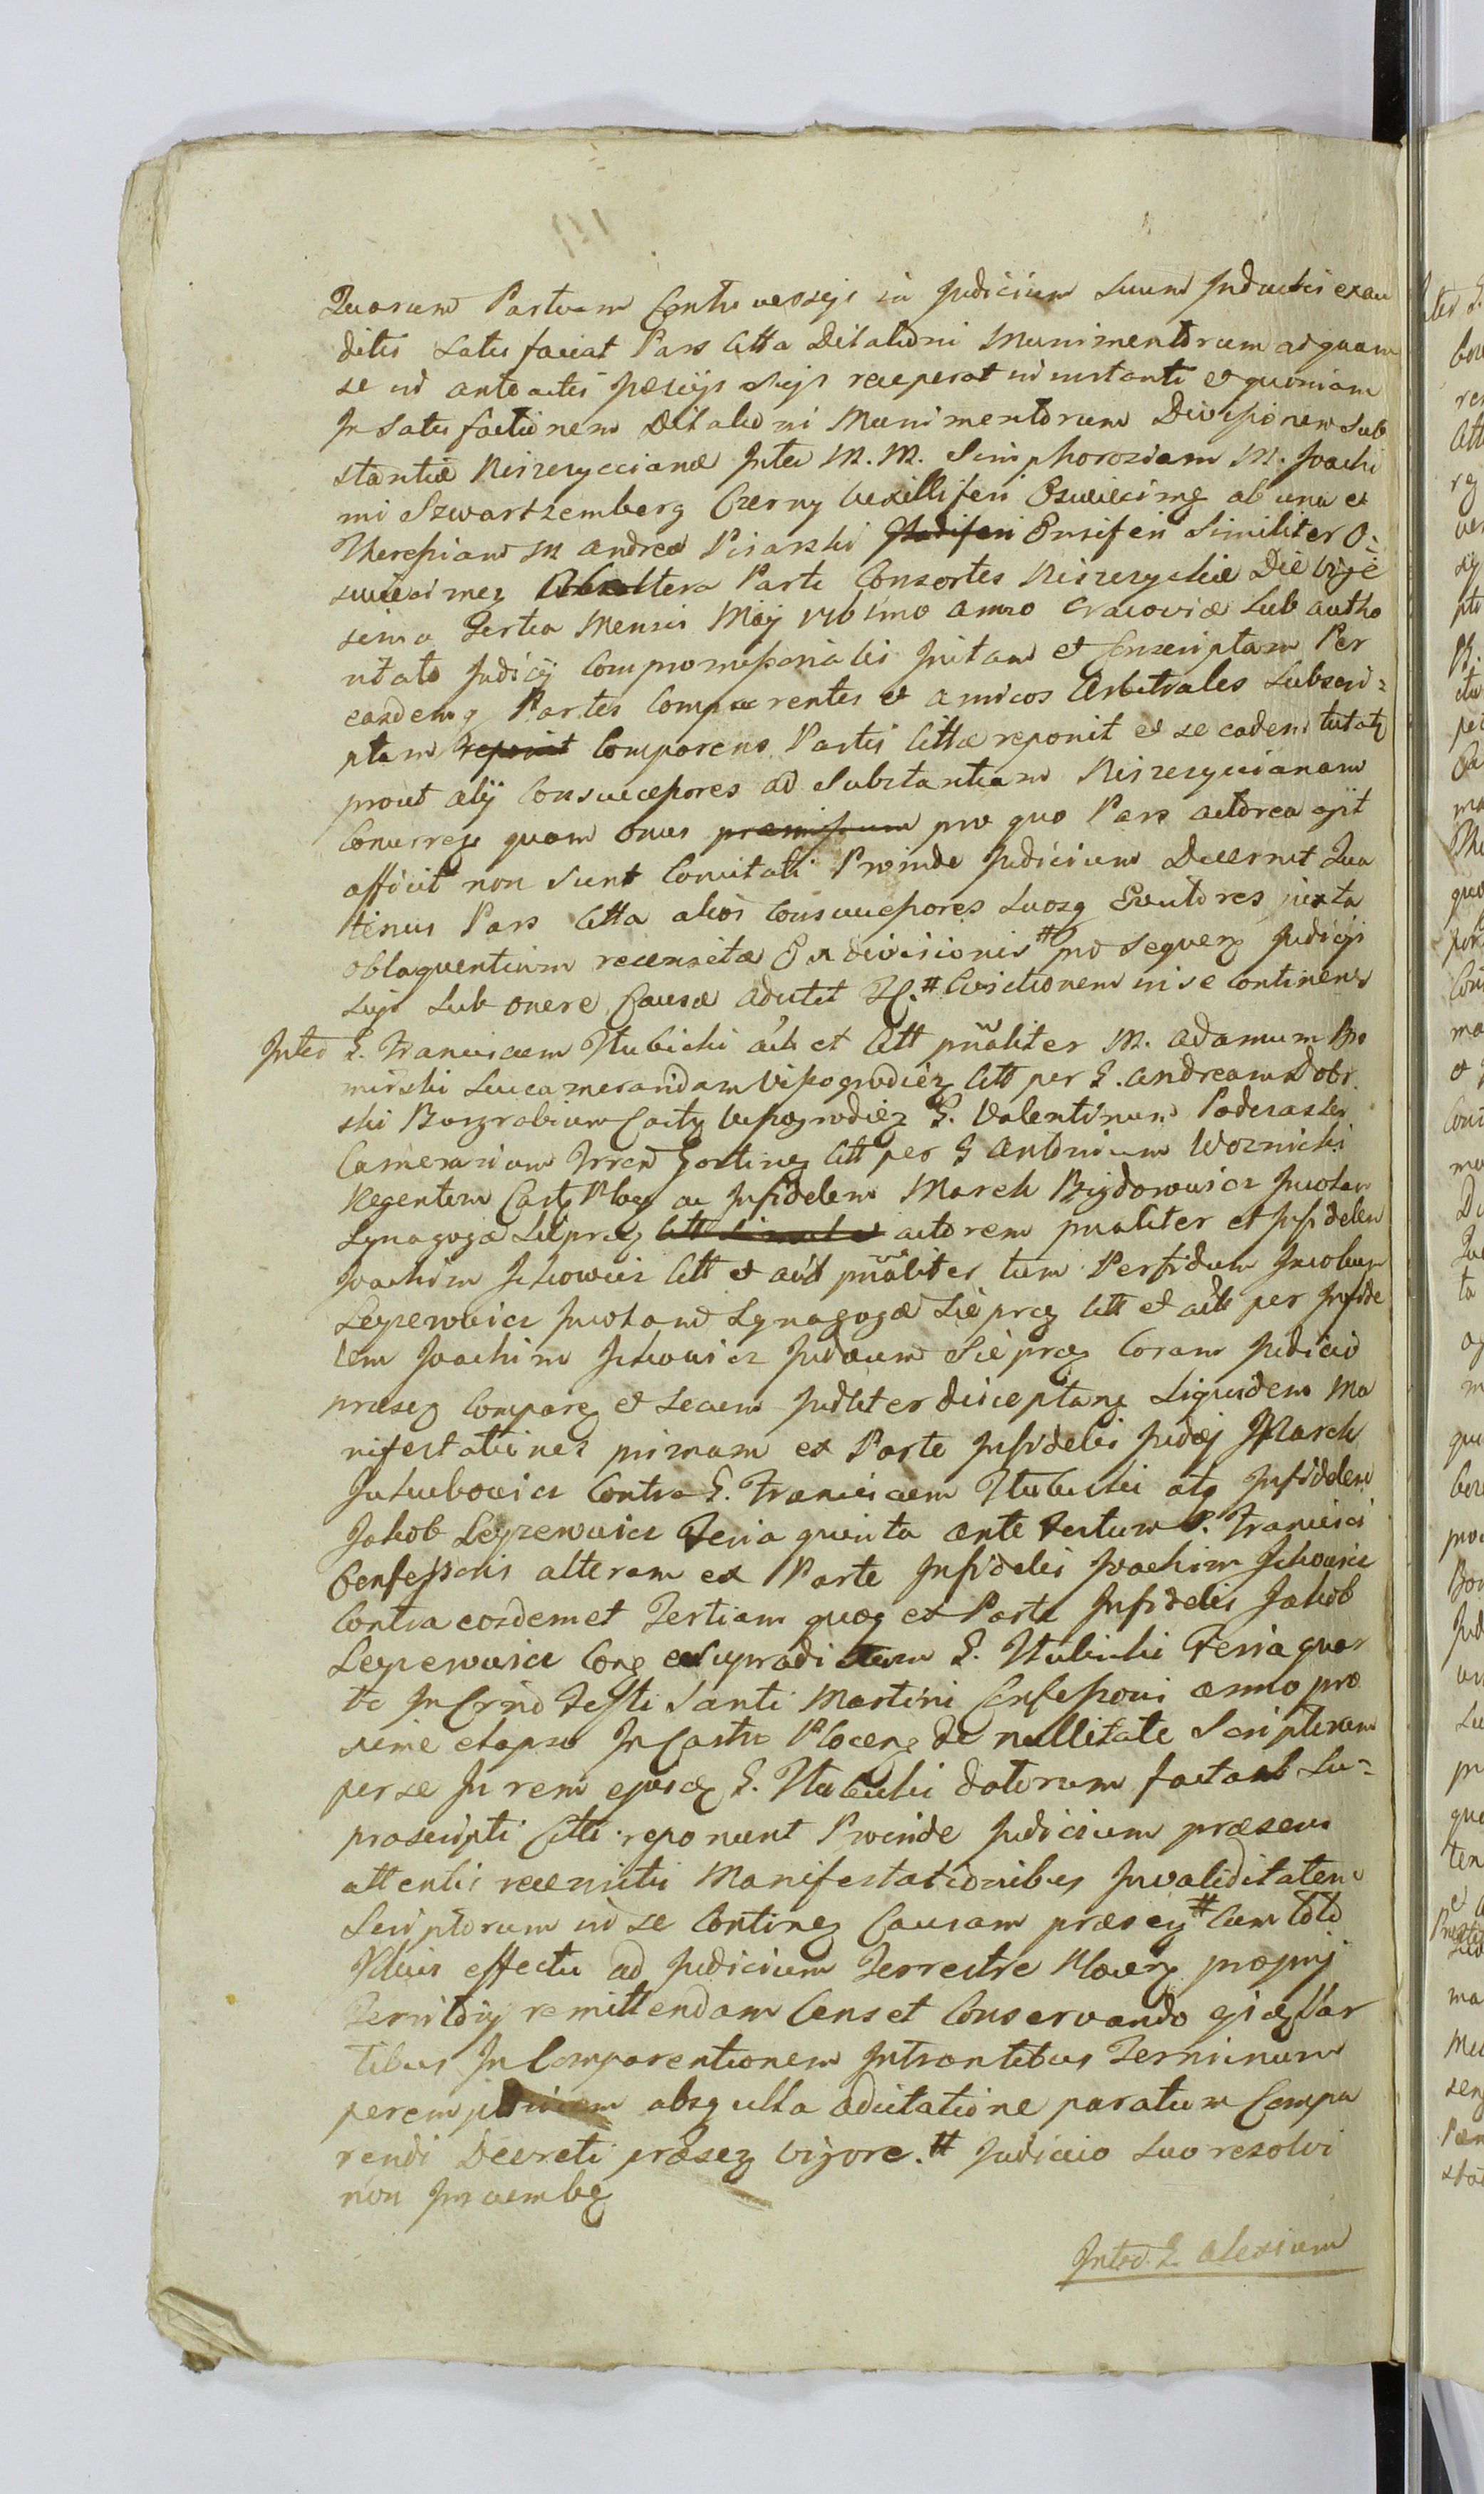 Quorum Partium Controversijs in Judicium suum Inductis exau
ditis satisfaciat Pars Citta Dilationi Munimentorum ad quam
se in anteactis receperat in instanti et quoniam
In satisfactionem Dilationi Munimentorum Divisionem sub
stantiæ Niszczyccianæ Inter M. M. Simphoroziam M. Joachi
mi Szwartzemberg Czerny Vexilliferi Oswiecimę ab una et
Theressiam M Andreæ Pisarski Ensiferi Similiter O:
swiecimeę Altera Parte Consortes Niszczyckie Die vige
sima Tertia Mensis Maij 1761mo anno Cracoviæ sub autho
ritate Judicij Compromissorialis Initam et Conscriptam Per
easdemq Partes Comparentes et amicos Arbitrales subscri=
ptam reponit Comparens Partis Cittæ reponit et se eadem tutatę
prout alij Consuccessores ad Substantiam Niszczyccianam
Concurręs quam onus præmissum pro quo Pars actorea agit
afficit non sunt Concitati Proinde Judicium Decernit Qua
tinus Pars Citta alios Consuccessores suosq Evictores juxta
obloquentiam recensitæ Ex divisionis # pro sequenę Judicij
sujs sub onere Causæ adcitet # Evictionem in se continens
Inter G. Franciscum Stubicki act et Citt pnaliter M. Adamum Bro
mirski Succameraridam Vissogrodieę Citt per G. Andream Dobr
ski Burgrabium Castę Vissogrodieę G. Valentinum Podczaski
Camerarium Terren Gostineę Citt per G Antonium Woznicki
Regentem Castę Ploceę ac Infidelem March Bigdowicz Incolam
Synagogæ Siepreę Citt simul et actorem pnaliter et Infidelem
Joachim Ickowicz Citt et act pnaliter tum Perfidum Jacobum
Leyzewicz Incolam Synagogæ Siepreę Citt et act per Infide
lem Joachim Ickowicz Judæum Siepreę Coram Judicio
præsenę Compareę et secum Judliter disceptanę Siquidem Ma
nifestationes primam ex Parte Infidelis Judæj March
Jakubowicz Contra G. Franciscum Stubicki atq Infidelem
Jakob Leyzewicz Feria quinta ante Festum S. Francisci
Confessoris alteram ex Parte Infidelis Joachim Ickowicz
Contra eosdemet Tertiam quoq ex Parte Infidelis Jakob
Leyzewicz Conę supradictum G. Stubicki Feria quar
ta In Crno Festi Santi Martini Confessoris anno pro
xime elapso In Castro Ploceę de nullitate Scripturam
per se In rem ejusdę G. Stubicki datorum factas su=
prascripti Citti reponunt Proinde Judicium præsens
attentis recensitis Manifestationibus Invaliditatem
Scriptorum in se Contineę Causam præsenę # Cum toto
Illius effectu ad Judicium Terrestre Ploceę proprij
Territorij remittendam Censet Conservando ejsdę Par
tibus In Comparentionem Intrantibus Terminum
peremptorium absq ulla adcitatione paratum Compa
rendi Decreti præsenę vigore. # Judicio suo resolvi
non Incumbeę
Inter G. Alexium